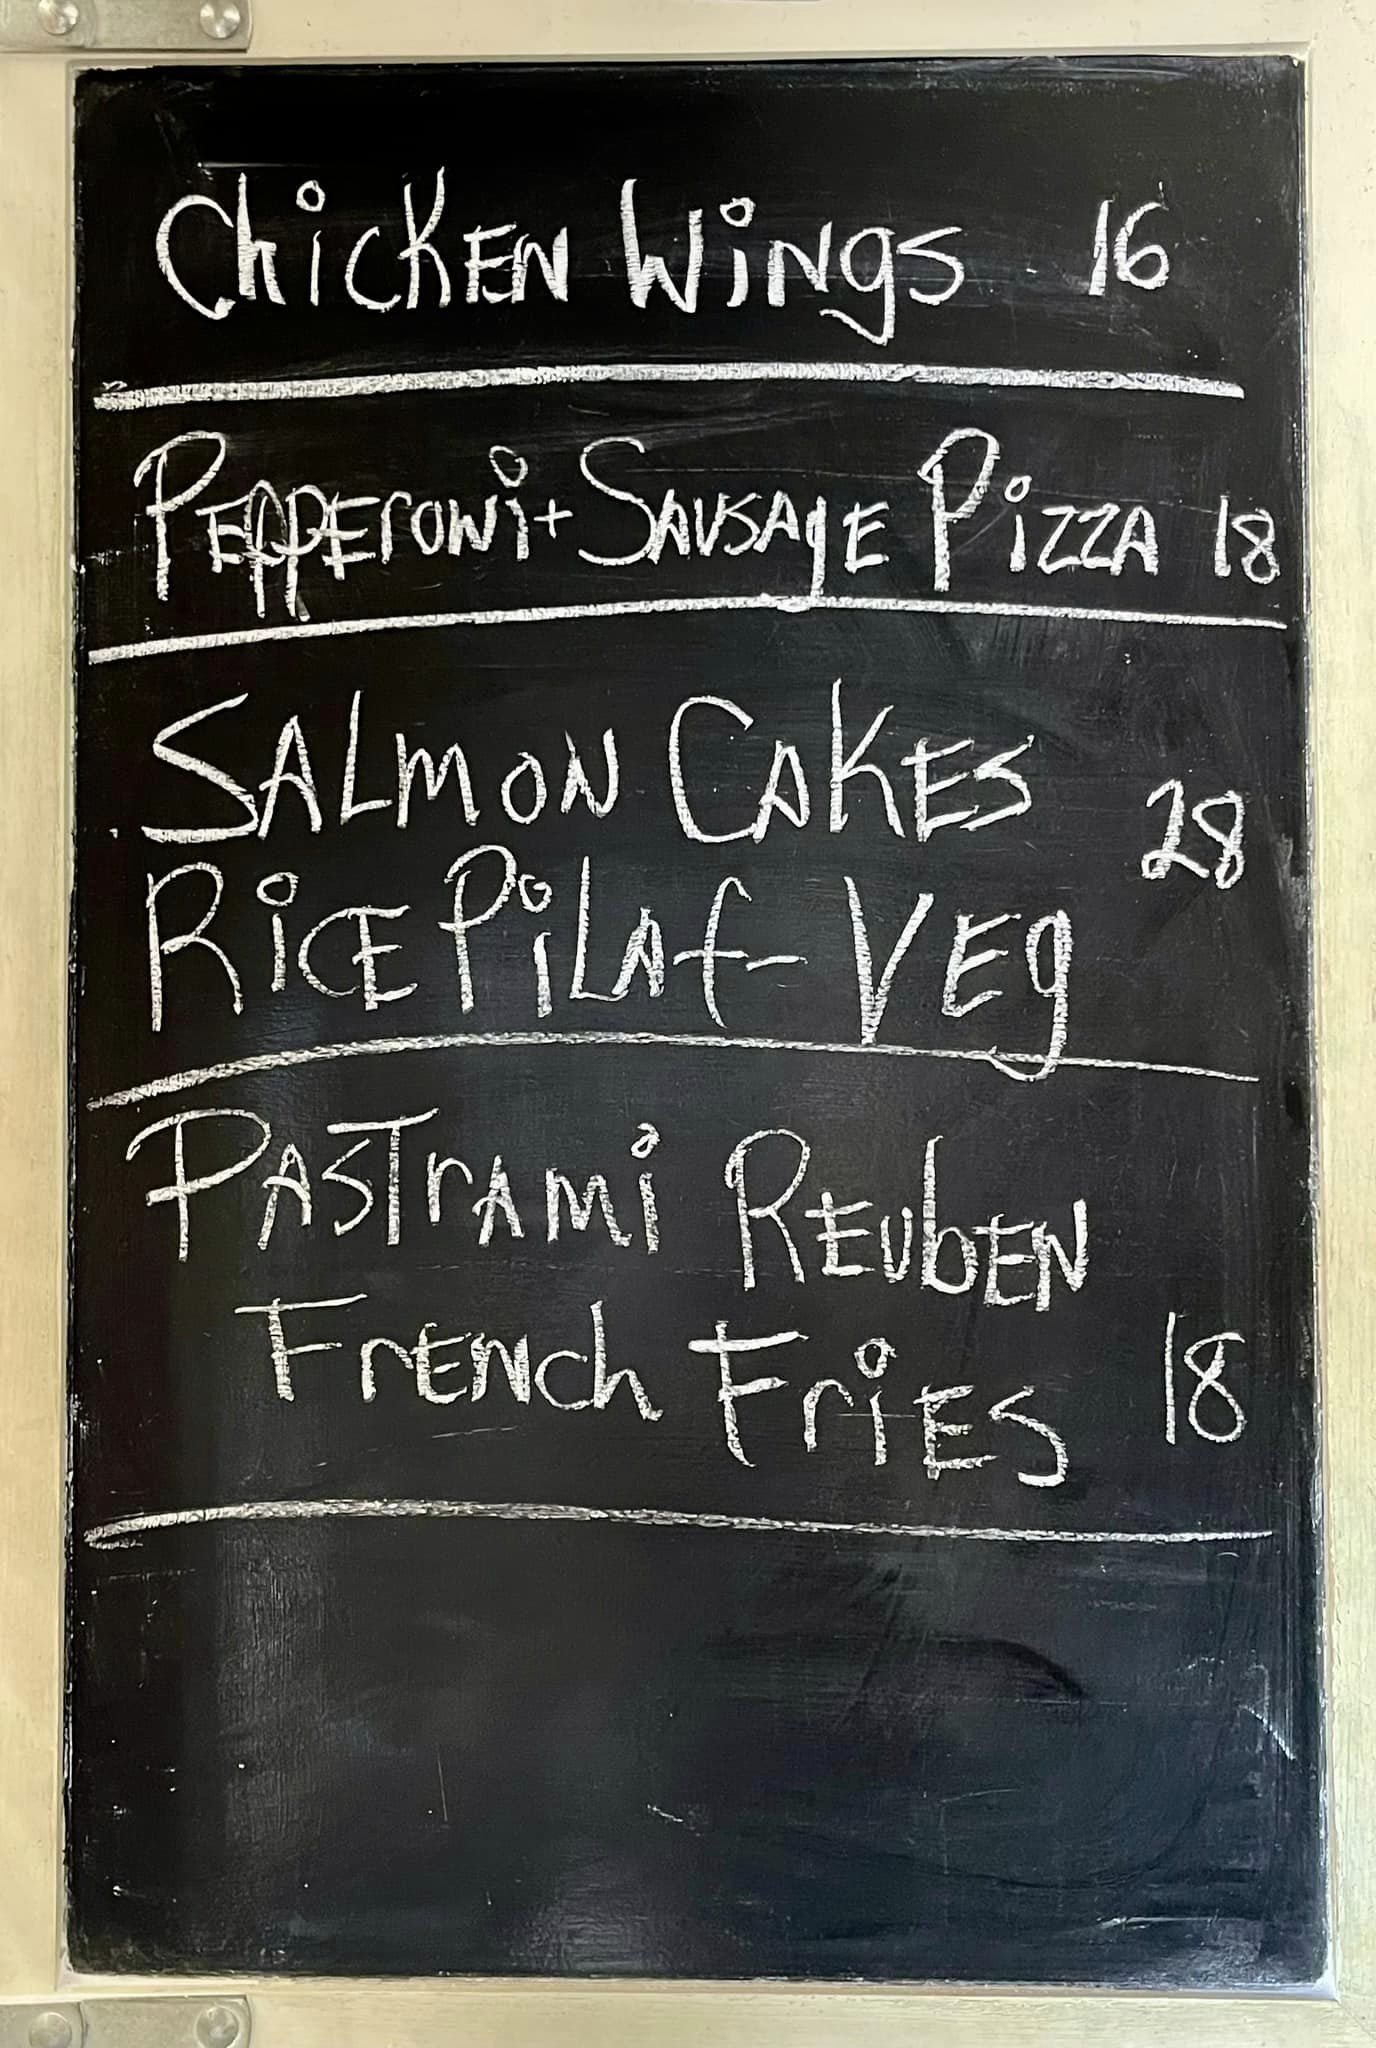 Chicken Wings 16
Pepperoni + Sausage Pizza 18
Salmon Cakes
28
Rice Pilaf - Veg
Pastrami Reuben
French Fries 18